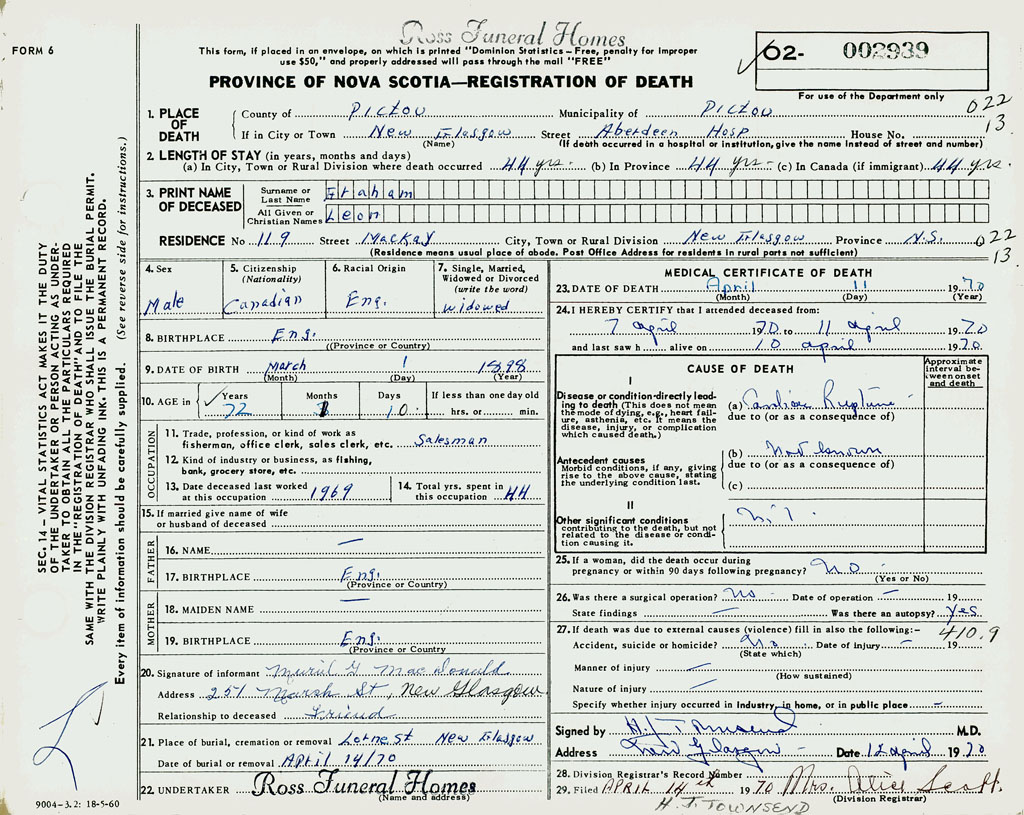 Ross Funeral Homes
FORM 6
This form, if placed in an envelope, on which is printed "Dominion Statistics - Free, penalty for improper
use $50," and properly addressed will pass through the mail "FREE"
62- 002939
PROVINCE OF NOVA SCOTIA—REGISTRATION OF DEATH
For use of the Department only
1. PLACE OF DEATH
County of Pictou Municipality of Pictou 022
If in City or Town New Glasgow Street Aberdeen Hosp House No. 13.
(Name) (If death occurred in a hospital or institution, give the name instead of street and number)
2. LENGTH OF STAY (in years, months and days)
(a) In City, Town or Rural Division where death occurred 44 yrs. (b) In Province 44 yrs. (c) In Canada (if immigrant) 44 yrs.
3. PRINT NAME OF DECEASED
Surname or Last Name Graham
All Given or Christian Names Leon
RESIDENCE No 119 Street MacKay City, Town or Rural Division New Glasgow Province N.S. 022
(Residence means usual place of abode. Post Office Address for residents in rural parts not sufficient) 13.
4. Sex
Male
5. Citizenship (Nationality)
Canadian
6. Racial Origin
Eng.
7. Single, Married, Widowed or Divorced (write the word)
Widowed
8. BIRTHPLACE Eng.
((Province or Country)
9. DATE OF BIRTH March 1 1898
(Month) (Day) (Year)
10. AGE in Years Months Days If less than one day old
72 1 10 hrs. or min.
OCCUPATION
11. Trade, profession, or kind of work as
fisherman, office clerk, sales clerk, etc. Salesman
12. Kind of industry or business, as fishing,
bank, grocery store, etc.
13. Date deceased last worked at this occupation 1969
14. Total yrs. spent in this occupation 44
15. If married give name of wife
or husband of deceased
FATHER
16. NAME —
17. BIRTHPLACE Eng.
(Province or Country)
MOTHER
18. MAIDEN NAME —
19. BIRTHPLACE Eng.
(Province or Country
20. Signature of informant G MacDonald
Address 251 Marsh St, New Glasgow
Relationship to deceased Friend
21. Place of burial, cremation or removal Lorne St New Glasgow
Date of burial or removal April 14/70
22. UNDERTAKER Ross Funeral Homes
(Name and address)
MEDICAL CERTIFICATE OF DEATH
23. DATE OF DEATH April 11 1970
(Month) (Day) (Year)
24. I HEREBY CERTIFY that I attended deceased from:
7 April 1970 to 11 April 1970
and last saw h alive on 10 April 1970
CAUSE OF DEATH
Approximate interval between onset and death
I
Disease or condition directly leading to death (This does not mean the mode of dying, e.g., heart failure, asthenia, etc. It means the disease, injury, or complication which caused death.)
(a) Cardiac Rupture
due to (or as a consequence of)
Antecedent causes
Morbid conditions, if any, giving rise to the above cause, stating the underlying condition last.
(b) Not known
due to (or as a consequence of)
(c)
II
Other significant conditions
contributing to the death, but not related to the disease or condition causing it.
Nil.
25. If a woman, did the death occur during
pregnancy or within 90 days following pregnancy? No
(Yes or No)
26. Was there a surgical operation? No Date of operation — 19
State findings — Was there an autopsy? Yes
27. If death was due to external causes (violence) fill in also the following:- 410.9
Accident, suicide or homicide? No Date of injury — 19
(State which)
Manner of injury —
(How sustained)
Nature of injury —
Specify whether injury occurred in industry, in home, or in public place -
Signed by H.J. Townsend M.D.
Address New Glasgow Date 12 April 1970
28. Division Registrar's Record Number
29. Filed APRIL 14th 1970 Mrs. Alice Scott
(Division Registrar)
H. J. TOWNSEND
SEC. 14 - VITAL STATISTICS ACT MAKES IT THE DUTY
OF THE UNDERTAKER OR PERSON ACTING AS UNDER-
TAKER TO OBTAIN ALL THE PARTICULARS REQUIRED
IN THE "REGISTRATION OF DEATH" AND TO FILE THE
SAME WITH THE DIVISION REGISTRAR WHO SHALL ISSUE THE BURIAL PERMIT.
WRITE PLAINLY WITH UNFADING INK. THIS IS A PERMANENT RECORD.
Every item of information should be carefully supplied. (See reverse side for instructions.)
9004-3.2: 18-5-60